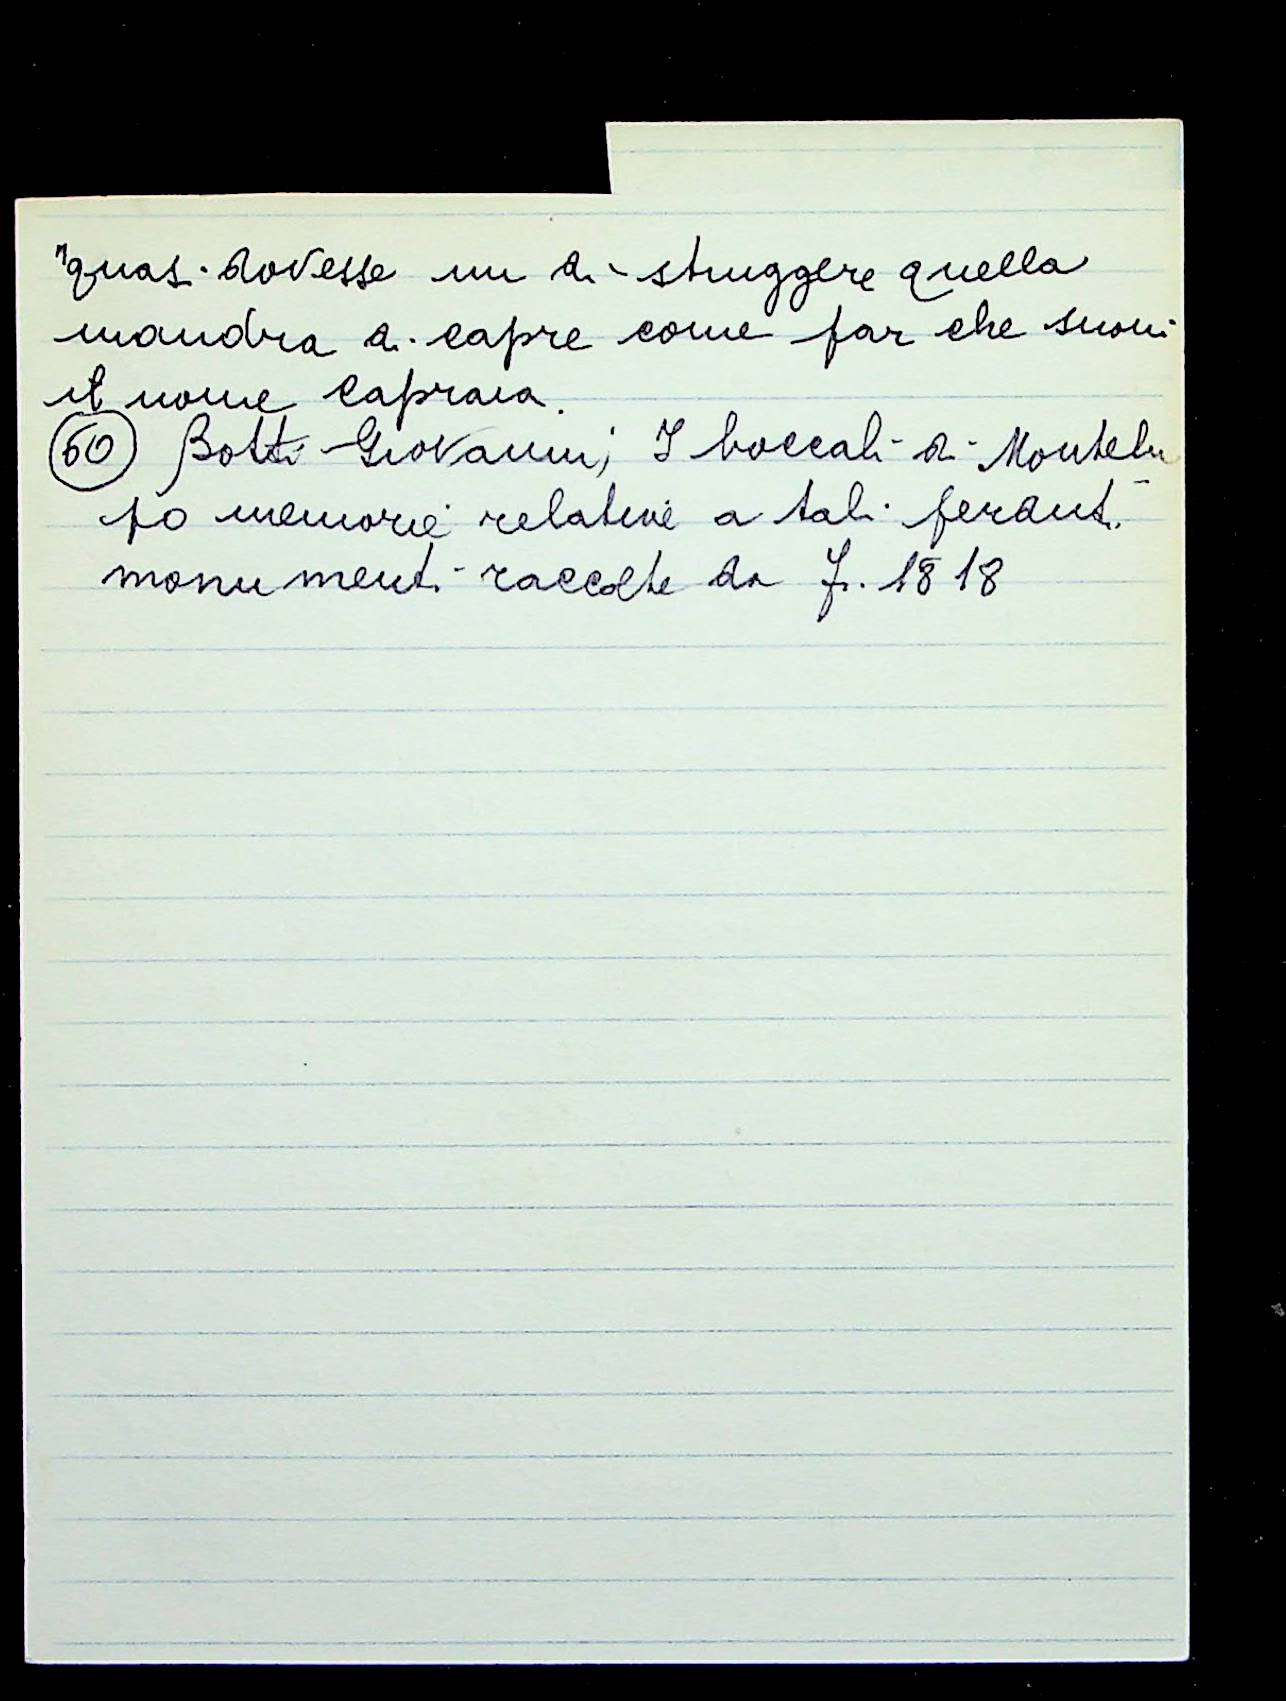 "quasi dovesse un di struggere quella
mandra di capre come far che suoni
il nome Capraia.
60 Botti Giovanni, I boccali di Montelu
po memorie relative a tali
monumenti raccolte da 1818